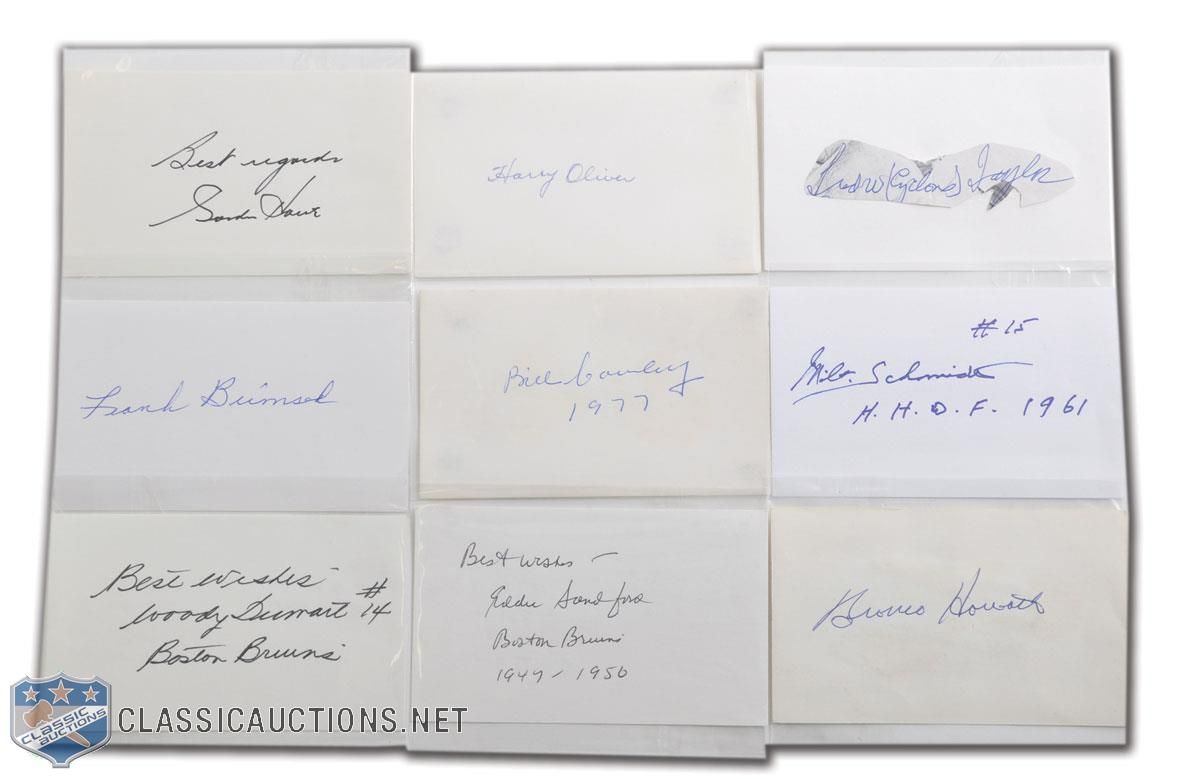 Best regards
Gordie Howe
Harry Oliver
Fred W (Cyclone) Taylor
Frank Brimsek
Bill Cowley
1977
#15
Milt Schmidt
H. H. O. F. 1961
Best wishes
Woody Dumart #14
Boston Bruins
Best wishes –
Eddie Sandford
Boston Bruins
1947 / 1956
Bronco Horvath
CLASSIC AUCTIONS
CLASSICAUCTIONS.NET